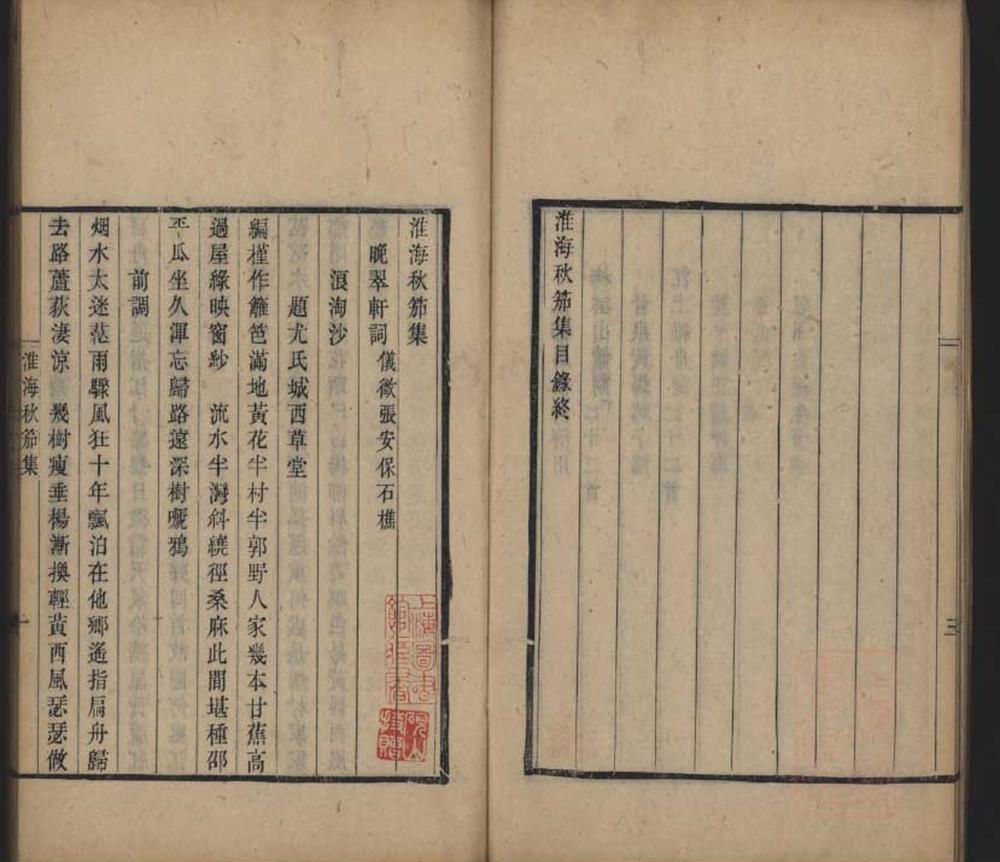 淮海秋笳集目錄終
三
淮海秋笳集
晚翠軒詞　儀徵張安保石樵
浪淘沙
題尤氏城西草堂
編槿作籬笆滿地黃花半村半郭野人家幾本甘蕉高
過屋綠映窗紗　流水半灣斜繞徑桑麻此間堪種邵
平瓜坐久渾忘歸路遠深樹嗁鴉
前調
烟水太迷茫雨驟風狂十年飄泊在他鄉遙指扁舟歸
去路蘆荻淒涼　幾樹瘦垂楊漸換輕黃西風瑟瑟做
淮海秋笳集
一
上海圖書館